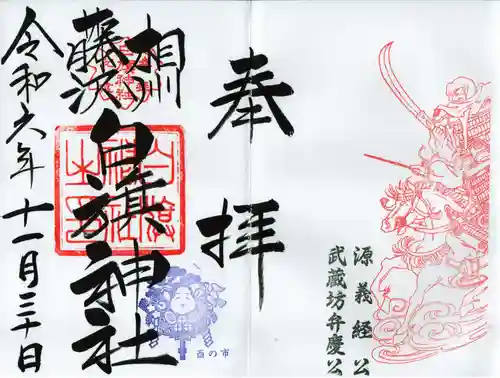 奉拝
源義経公
武蔵坊弁慶公
相州
藤沢
白旗神社
酉の市
令和六年十一月三十日